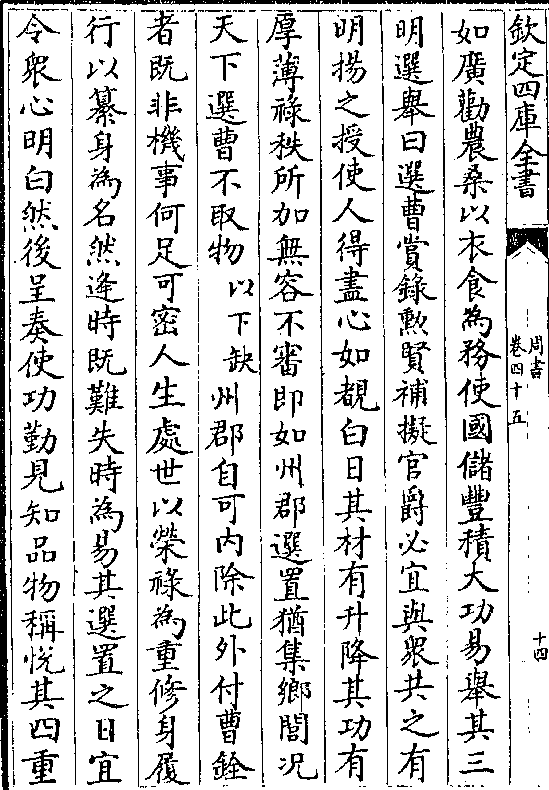 欽定四庫全書
周書
卷四十五
十四
如廣勸農桑以衣食為務使國儲豐積大功易舉其三
明選舉曰選曹賞錄勲賢補擬官爵必宜與衆共之有
明揚之授使人得盡心如覩白日其材有升降其功有
厚薄祿秩所加無容不審即如州郡選置猶集鄉閭况
天下選曹不取物以下缺州郡自可内除此外付曹銓
者既非機事何足可密人生處世以榮祿為重修身履
行以纂身為名然逢時既難失時為易其選置之日宜
令衆心明白然後呈奏使功勤見知品物稱恱其四重